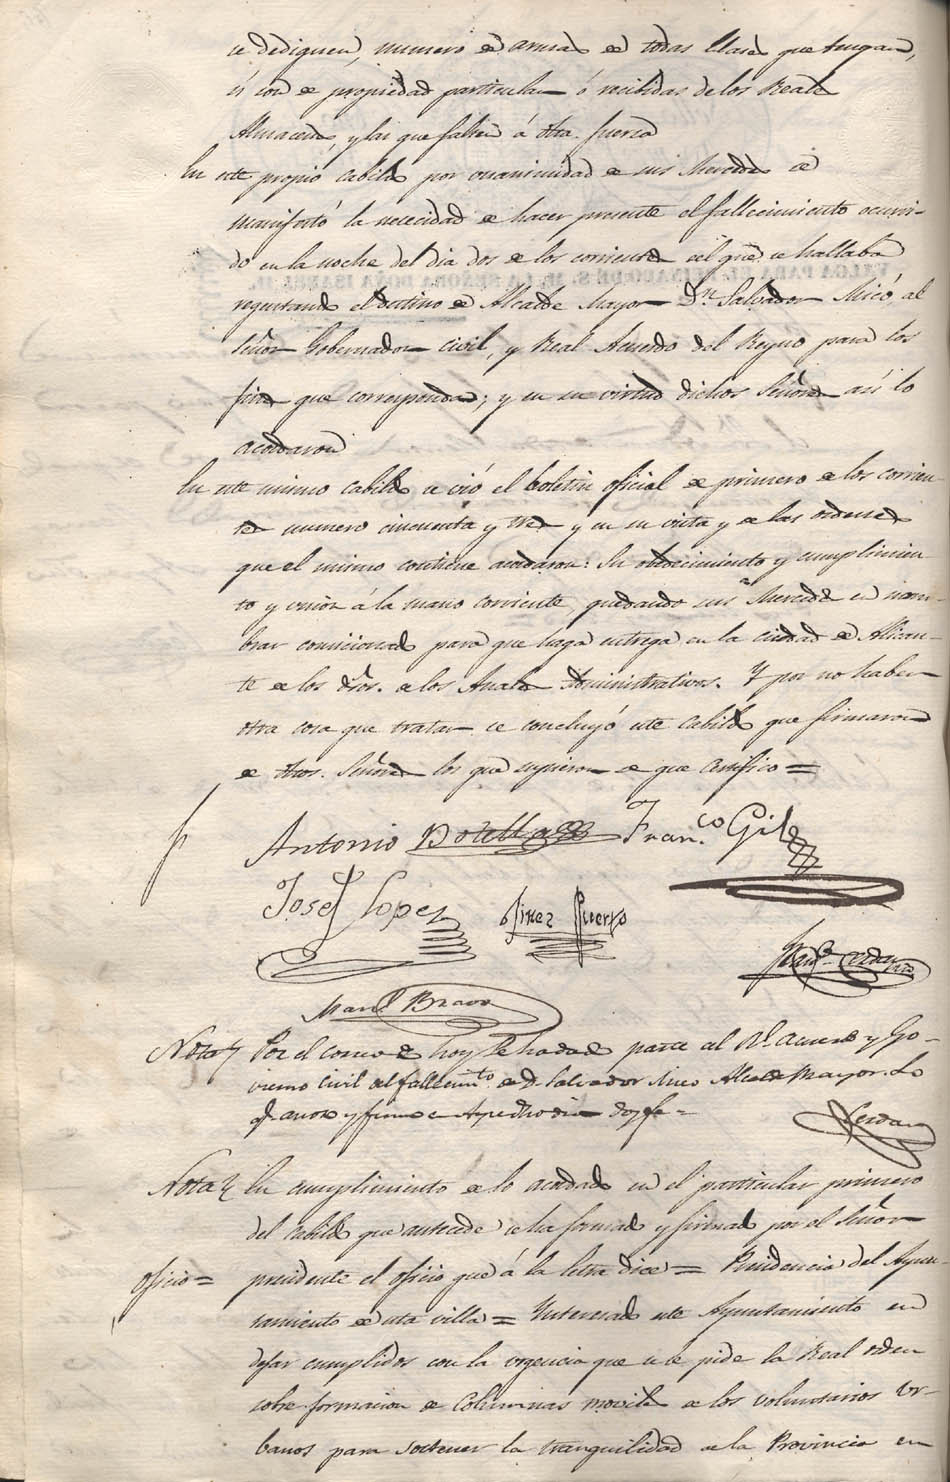 se dediquen, numero de armas de todas clases que tengan,
si son de propiedad particular ó recibidas de los Reales
Almacenes, y las que falten á otra fuerza
En este propio cabildo por unanimidad de sus Mercedes se
manifestó la necesidad de hacer presente el fallecimiento ocurri-
do en la noche del dia dos de los corrientes del que se hallaba
regentando el destino de Alcalde Mayor Dn. Salvador Micó al
Señor Gobernador civil, y Real Acuerdo del Reyno para los
fines que correspondan; y en su virtud dichos Señores así lo
acordaron
En este mismo cabildo se vió el boletin oficial de primero de los corrien-
tes numero cincuenta y tres y en su vista y de las ordenes
que el mismo contiene acordaron: Su obedecimiento y cumplimien-
to y union á la mano corriente, quedando sus Mercedes en nom-
brar comicionado para que haga entrega en la ciudad de Alican-
te de los dros. de los Anales Administrativos. Y por no haber
otra cosa que tratar se concluyó este cabildo que firmaron
de dhos. Señores los que supieron de que certifico =
Antonio Botella Franco Gil
Josef Lopez Ginez Puerto
Franco Cerdan
Manl Bravo
Nota Por el correo de hoy se ha dado parte al Rl. acuerdo y Go-
vierno Civil del fallecimto. de D. Salvador Mico Alcalde Mayor. Lo
q anoto y firmo doy fe =
Cerdan
Nota En cumplimiento de lo acordado en el particular primero
del cabildo que antecede se ha formado y firmado por el Señor
oficio = presidente el oficio que á la letra dice = Presidencia del Ayun-
tamiento de esta villa = Interesado este Ayuntamiento en
dejar cumplidos con la urgencia que se pide la Real orden
sobre formacion de Columnas moviles de los voluntarios Ur-
banos para sostener la tranquilidad de la Provincia en